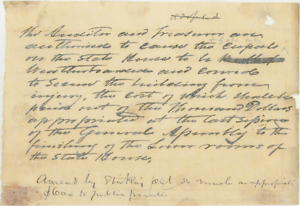 The Auditor and Treasurer are
authorized to cause the cupola
on the State House to be
Weatherboarded and
to Secure the building from
injury, the cost of which shall be
paid out of the Thousand Dollars
appropriated at the last Session
of the General Assembly to the
finishing of the rooms of
the State House,
Amend by Striking out so much as
to public